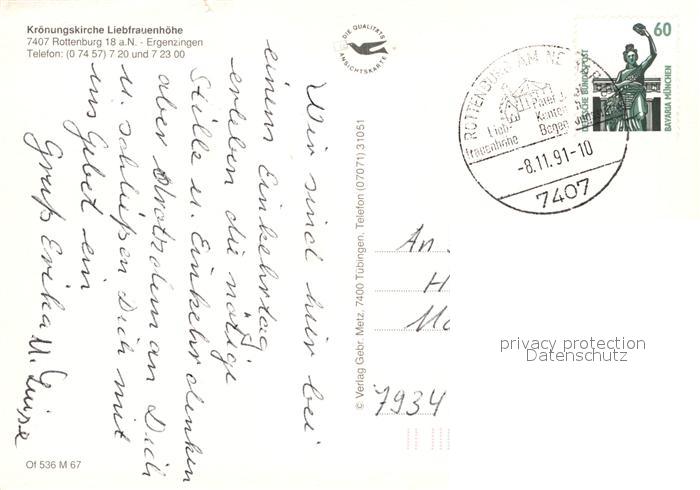 Krönungskirche Liebfrauenhöhe
7407 Rottenburg 18 a.N. - Ergenzingen
Telefon: (0 74 57) 7 20 und 7 23 00
DIE QUALITÄTS
ANSICHTSKARTE
60
DEUTSCHE BUNDESPOST
BAVARIA MÜNCHEN
ROTTENBURG AM NECKAR
Pater
Kenten
Liebfrauenhöhe
-8.11.91-10
7407
Wir sind hier bei
einem Einkehrtag
erleben die nötige
Stille u. Einkehr denken
aber trotzdem an Dich
u. schließen Dich mit
ins Gebet ein
Gruß Erika u. Luise
© Verlag Gebr. Metz, 7400 Tübingen, Telefon (07071) 31051
An
H
7934
privacy protection
Datenschutz
Of 536 M 67